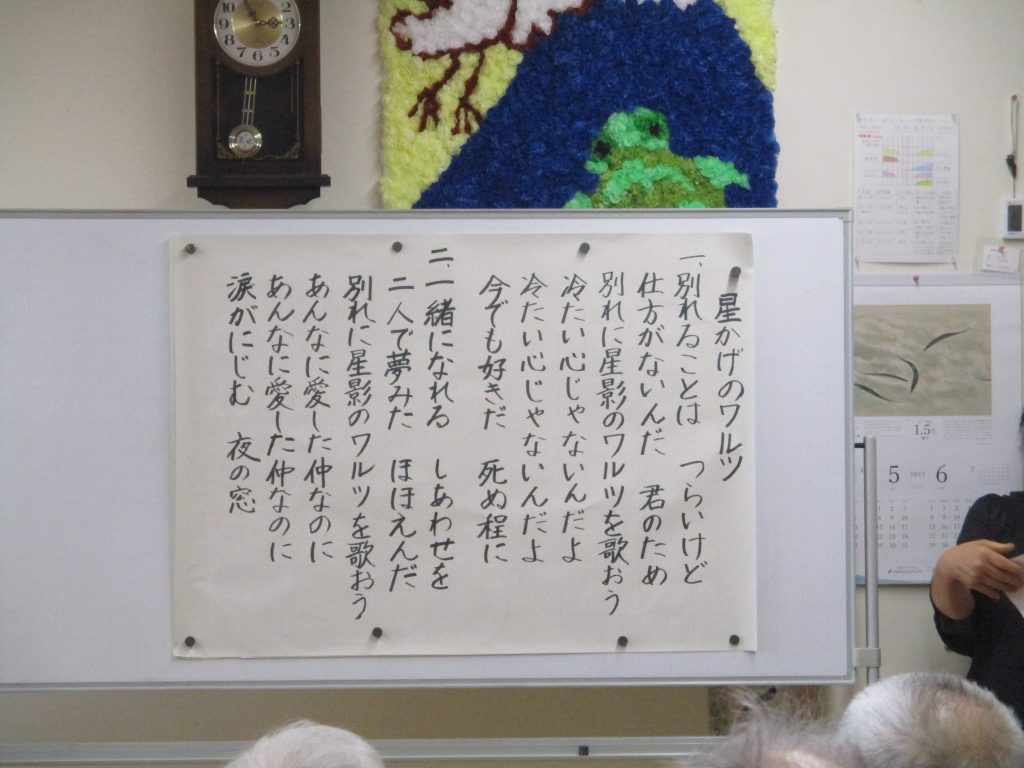 星かげのワルツ
一、別れることは つらいけど
仕方がないんだ 君のため
別れに星影のワルツを歌おう
冷たい心じゃないんだよ
冷たい心じゃないんだよ
今でも好きだ 死ぬ程に
二、一緒になれる しあわせを
二人で夢みた ほほえんだ
別れに星影のワルツを歌おう
あんなに愛した仲なのに
あんなに愛した仲なのに
涙がにじむ 夜の窓
10 2 3 4 5 6 7 8 9
5 2025 6